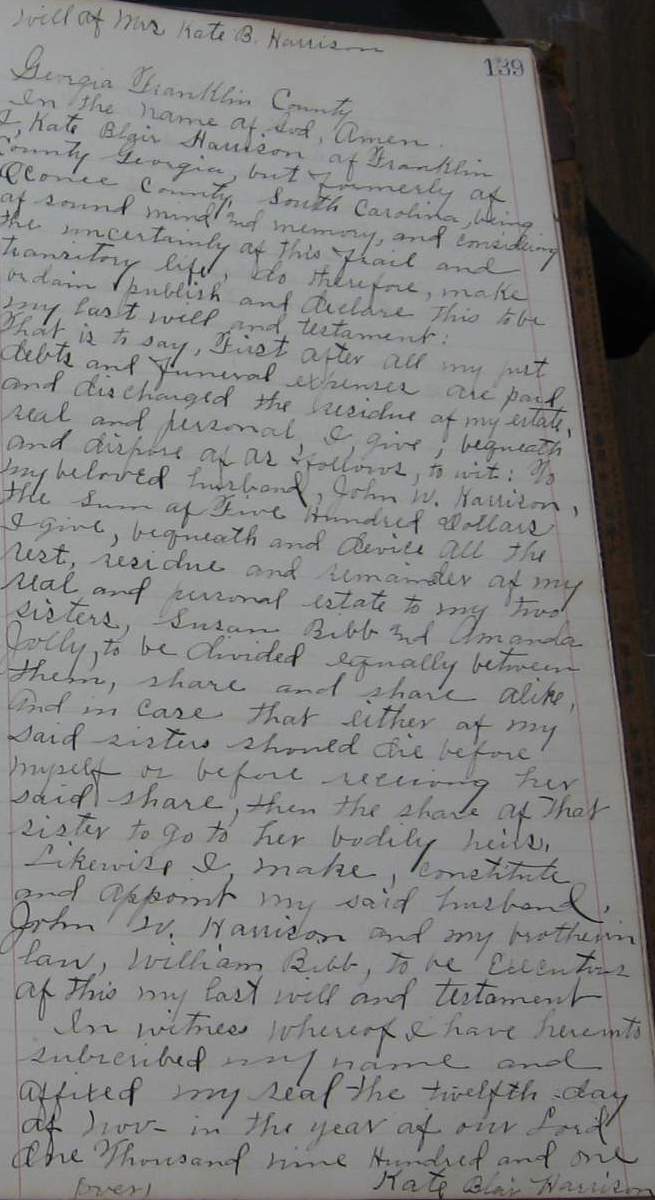 Will of Mrs Kate B. Harrison
139
Georgia Franklin County
In the name of God, Amen.
I, Kate Blair Harrison of Franklin
County Georgia, but formerly of
Oconee County, South Carolina, being
of sound mind and memory, and considering
the uncertainly of this frail and
transitory life, do therefore, make
ordain publish and declare this to be
my last will and testament:
That is to say, First after all my just
debts and funeral expenses are paid
and discharged the residue of my estate,
real and personal, I, give, bequeath
and dispose of as follows, to wit: To
my beloved husband, John W. Harrison,
the sum of Five Hundred Dollars
I give, bequeath and device all the
rest, residue and remainder of my
real and personal estate to my two
sisters, Susan Bibb and Amanda
Jolly, to be divided equally between
them, share and share alike,
and in case that either of my
said sisters should die before
myself or before receiving her
said share, then the share of that
sister to go to her bodily heirs.
Likewise I, make, constitute
and appoint my said husband,
John W. Harrison and my brother in
law, William Bibb, to be Executors
of this my last will and testament
In witness whereof I have hereunto
subscribed my name and
affixed my seal the twelfth day
of Nov- in the year of our Lord
One Thousand nine Hundred and one
Kate Blair Harrison
(over)